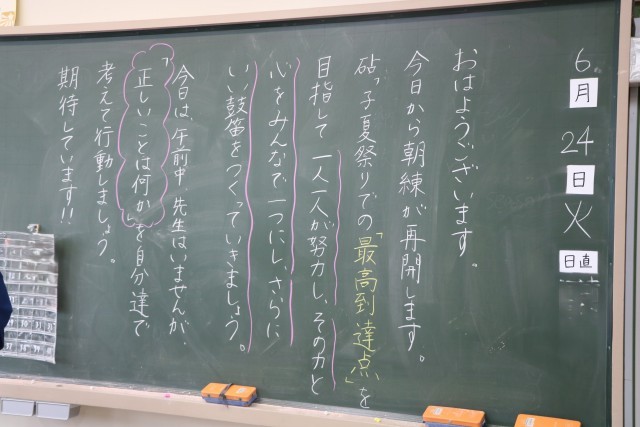 6月24日火
日直
おはようございます。
今日から朝練が再開します。
砧っ子夏祭りでの「最高到達点」を
目指して一人一人が努力し、その力と
心をみんなで一つにし、さらに
いい鼓笛をつくっていきましょう。
今日は、午前中、先生はいませんが、
「正しいことは何か」を自分達で
考えて行動しましょう。
期待しています!!